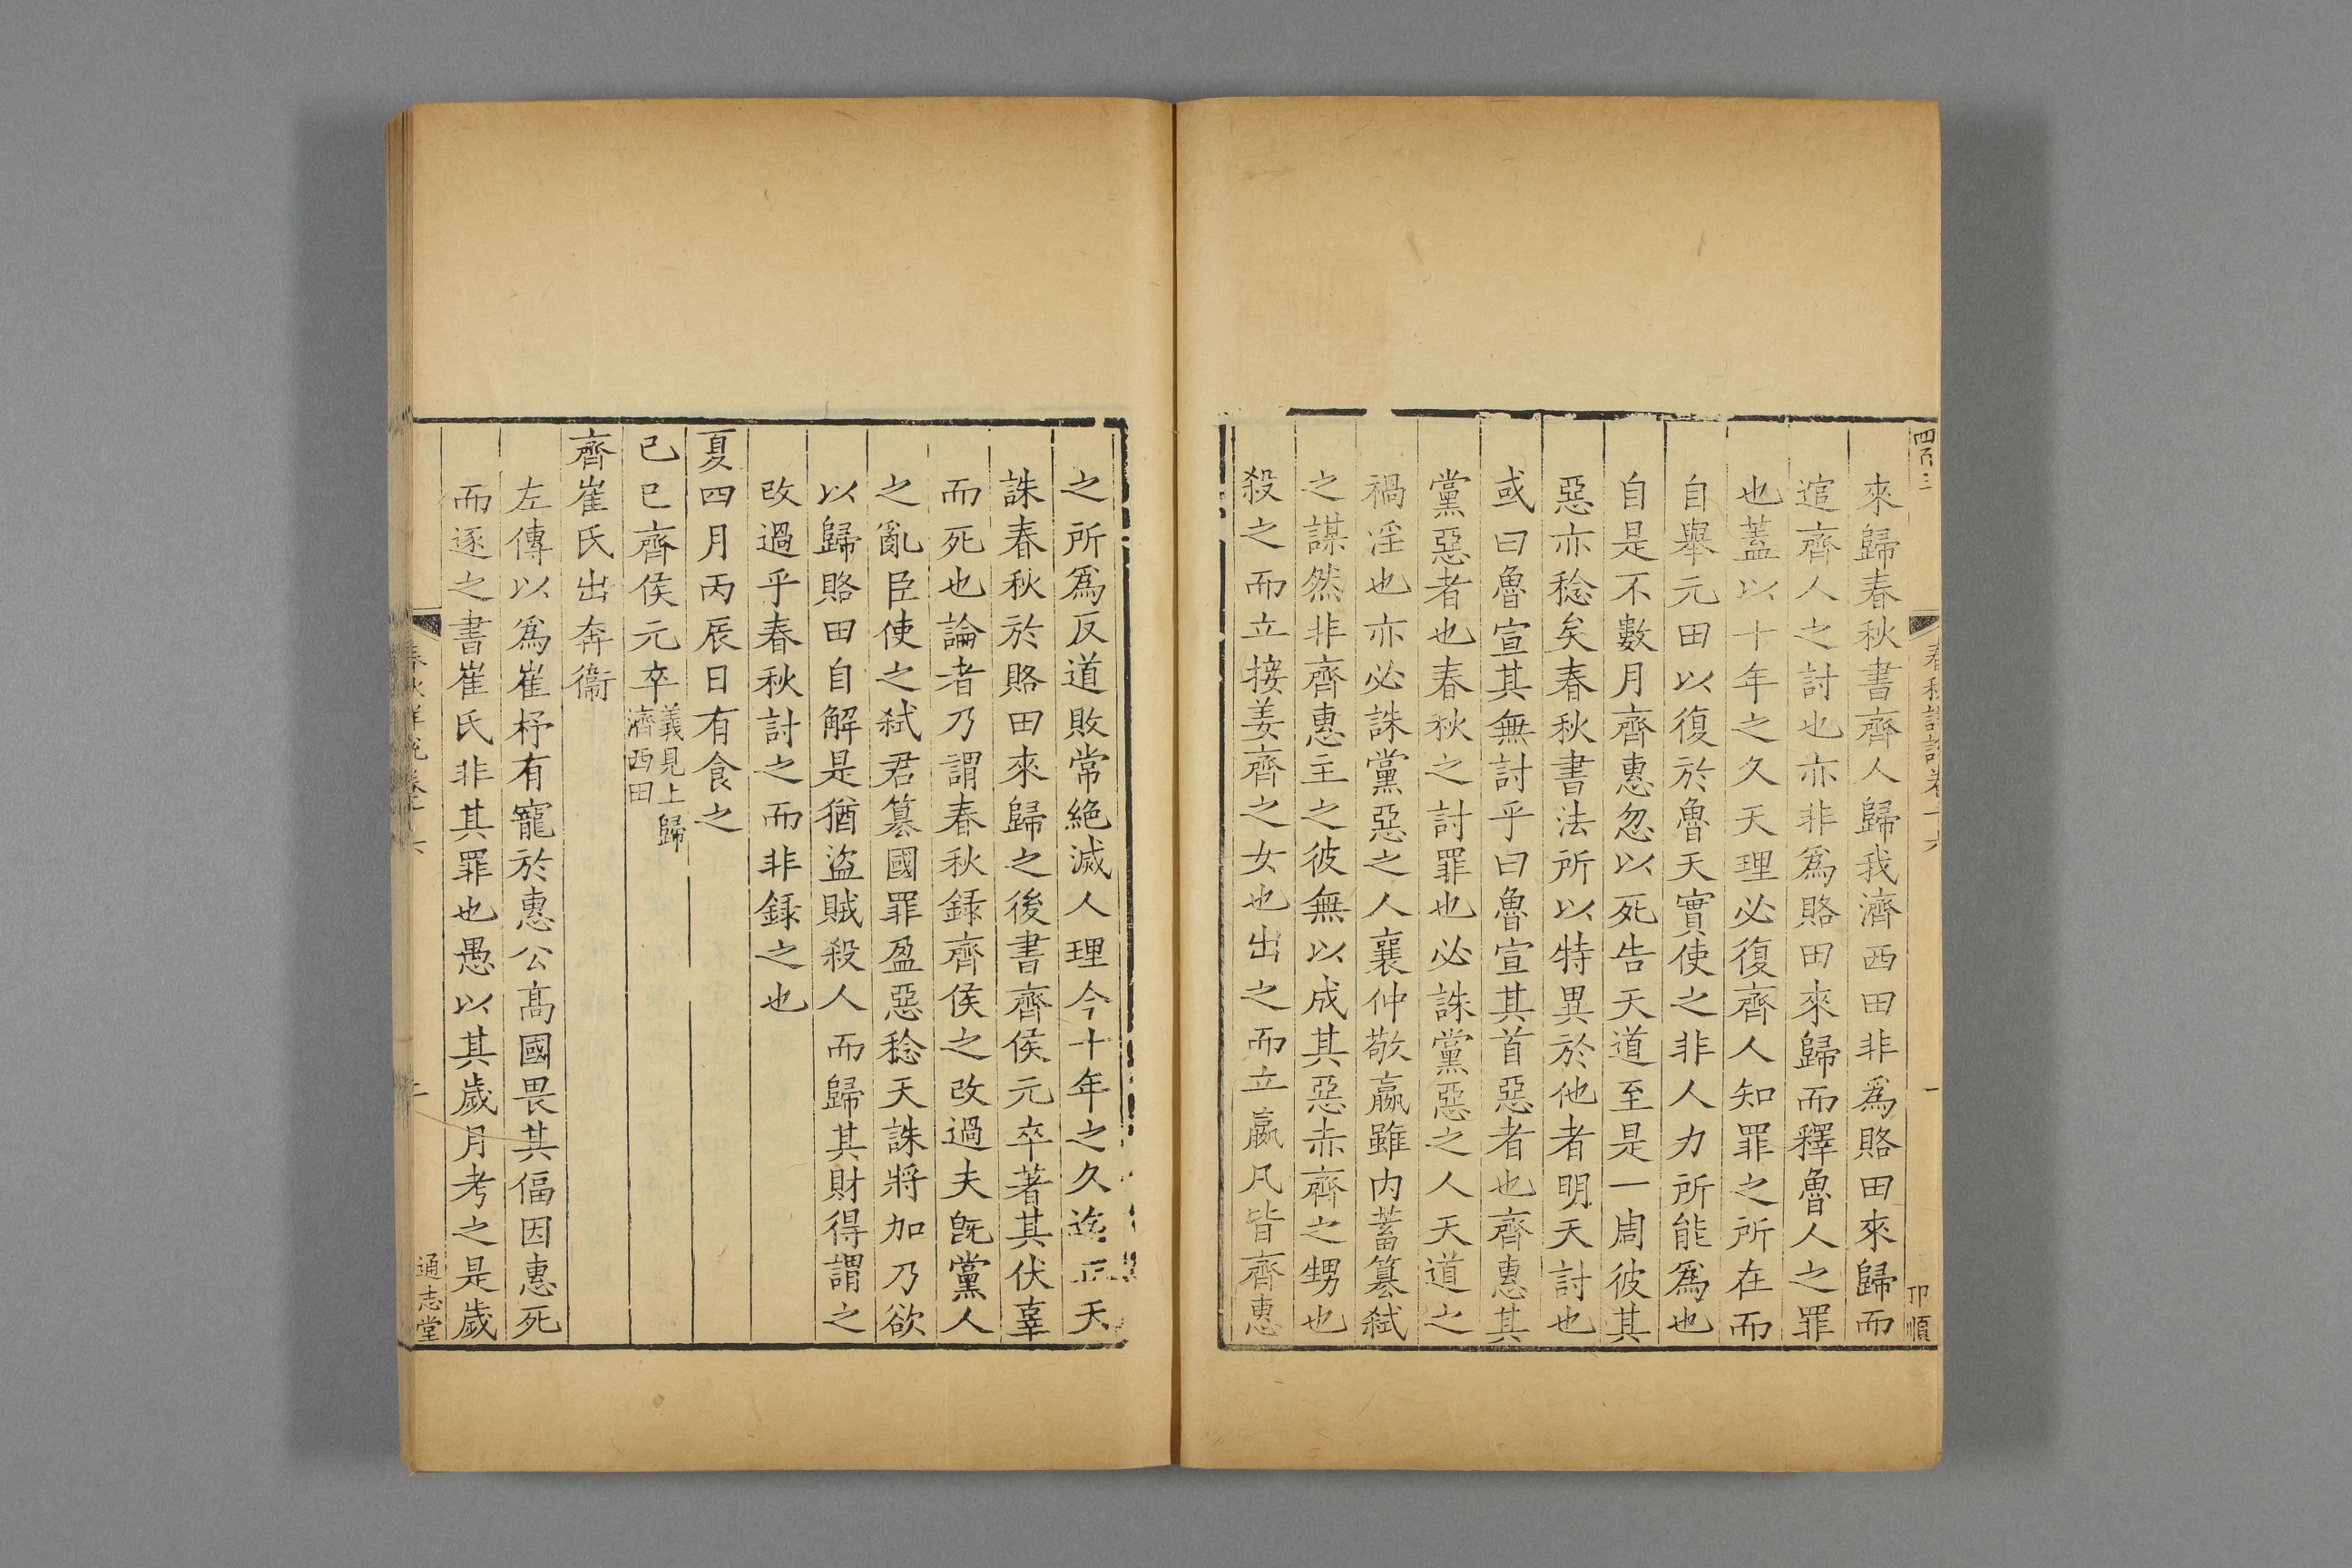 四百三
春秋詳說卷十六
一
卬順
來歸春秋書齊人歸我濟西田非爲賂田來歸而
逭齊人之討也亦非爲賂田來歸而釋魯人之罪
也蓋以十年之久天理必復齊人知罪之所在而
自舉元田以復於魯天實使之非人力所能爲也
自是不數月齊惠忽以死告天道至是一周彼其
惡亦稔矣春秋書法所以特異於他者明天討也
或曰魯宣其無討乎曰魯宣其首惡者也齊惠其
黨惡者也春秋之討罪也必誅黨惡之人天道之
禍淫也亦必誅黨惡之人襄仲敬嬴雖内蓄篡弑
之謀然非齊惠主之彼無以成其惡赤齊之甥也
殺之而立接姜齊之女也出之而立嬴凡皆齊惠
之所爲反道敗常絕滅人理今十年之久迄正天
誅春秋於賂田來歸之後書齊侯元卒著其伏辜
而死也論者乃謂春秋録齊侯之改過夫旣黨人
之亂臣使之弑君篡國罪盈惡稔天誅將加乃欲
以歸賂田自解是猶盜賊殺人而歸其財得謂之
改過乎春秋討之而非録之也
夏四月丙辰日有食之
己巳齊侯元卒
義見上歸
濟西田
齊崔氏出奔衞
左傳以爲崔杼有寵於惠公高國畏其偪因惠死
而逐之書崔氏非其罪也愚以其歲月考之是歲
春秋詳說卷十六
二
通志堂